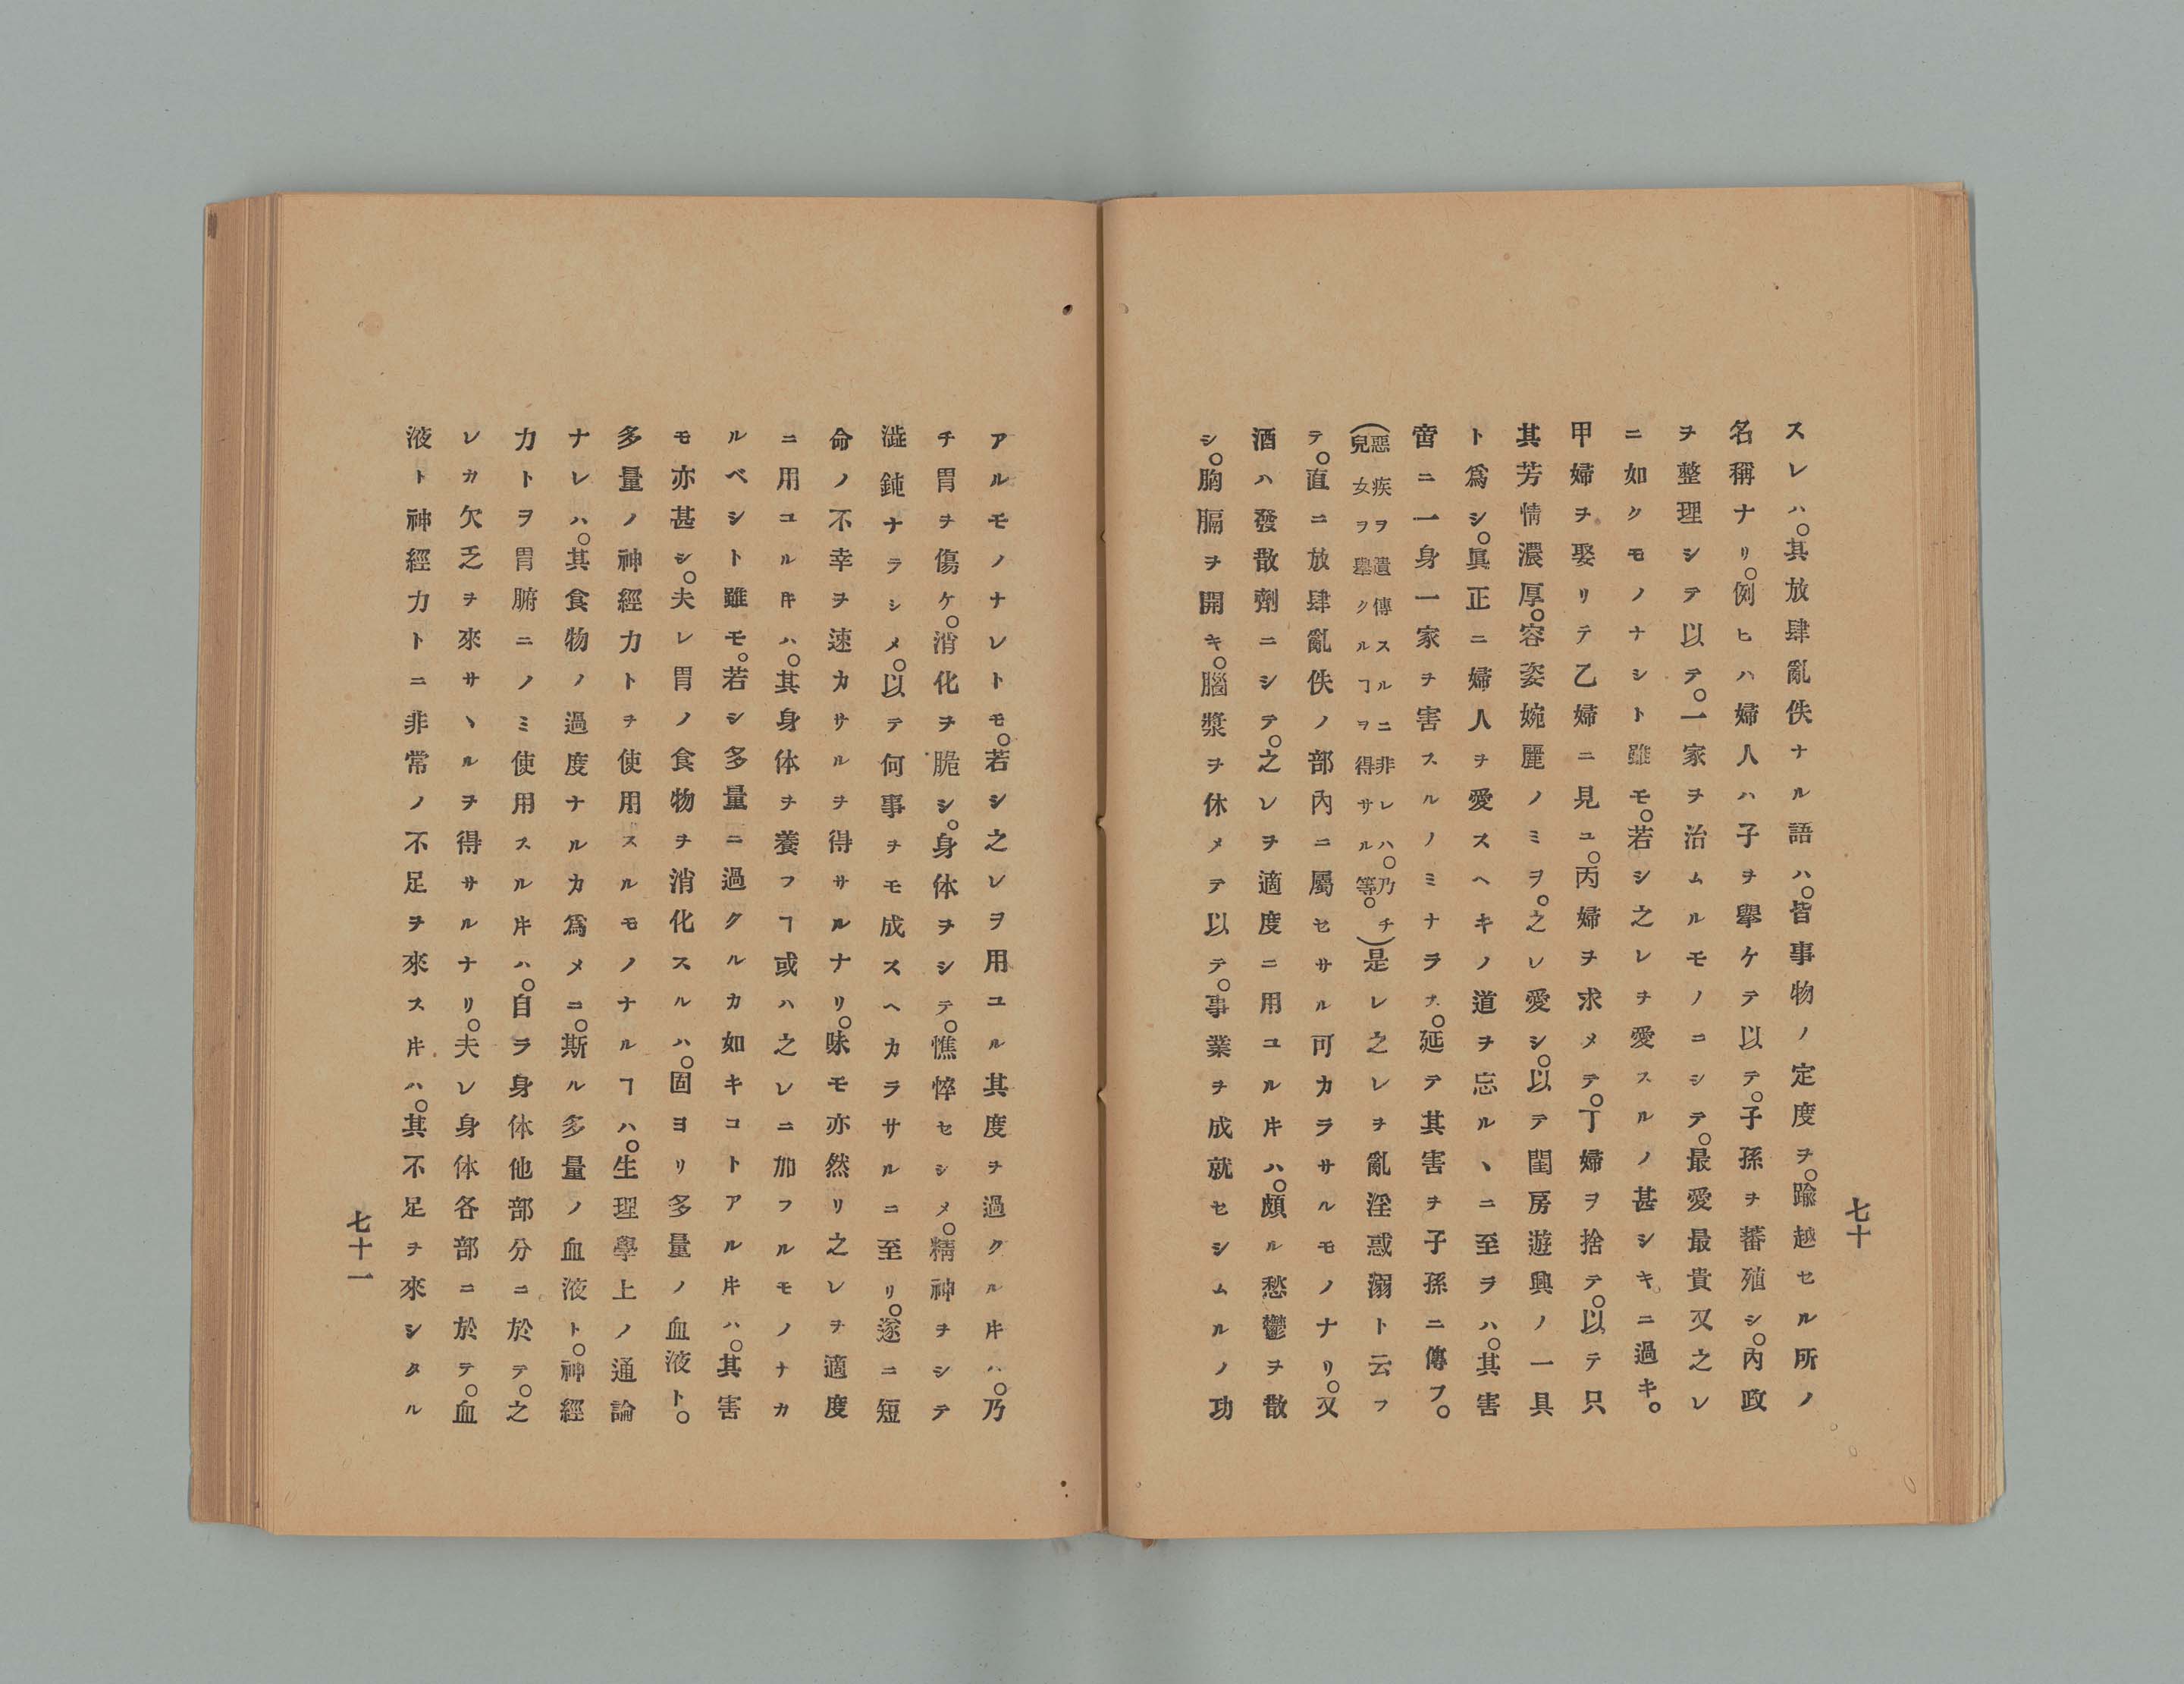 七十
スレハ。其放肆亂佚ナル語ハ。皆事物ノ定度ヲ。踰越セル所ノ
名稱ナリ。例ヒハ婦人ハ子ヲ擧ケテ以テ。子孫ヲ蕃殖シ。內政
ヲ整理シテ以テ。一家ヲ治ムルモノニシテ。最愛最貴又之レ
ニ如クモノナシト雖モ。若シ之レヲ愛スルノ甚シキニ過キ。
甲婦ヲ娶リテ乙婦ニ見ユ。丙婦ヲ求メテ。丁婦ヲ捨テ。以テ只
其芳情濃厚。容姿婉麗ノミヲ。之レ愛シ。以テ閨房遊興ノ一具
ト爲シ。眞正ニ婦人ヲ愛スヘキノ道ヲ忘ルヽニ至ラハ。其害
啻ニ一身一家ヲ害スルノミナラス。延テ其害ヲ子孫ニ傳フ。
(惡疾ヲ遺傳スルニ非レハ。乃チ
兒女ヲ擧クルヿヲ得サル等。)是レ之レヲ亂淫惑溺ト云フ
テ。直ニ放肆亂佚ノ部內ニ屬セサル可カラサルモノナリ。又
酒ハ發散劑ニシテ。之レヲ適度ニ用ユル𪜈ハ。頗ル愁鬱ヲ散
シ。胸膈ヲ開キ。腦漿ヲ休メテ以テ。事業ヲ成就セシムルノ功
アルモノナレトモ。若シ之レヲ用ユル其度ヲ過クル𪜈ハ。乃
チ胃ヲ傷ケ。消化ヲ脆シ。身体ヲシテ。憔悴セシメ。精神ヲシテ
澁鈍ナラシメ。以テ何事ヲモ成スヘカラサルニ至リ。遂ニ短
命ノ不幸ヲ速カサルヲ得サルナリ。味モ亦然リ之レヲ適度
ニ用ユル𪜈ハ。其身体ヲ養フヿ或ハ之レニ加フルモノナカ
ルベシト雖モ。若シ多量ニ過クルカ如キコトアル𪜈ハ。其害
モ亦甚シ。夫レ胃ノ食物ヲ消化スルハ。固ヨリ多量ノ血液ト。
多量ノ神經力トヲ使用スルモノナルヿハ。生理學上ノ通論
ナレハ。其食物ノ過度ナルカ爲メニ。斯ル多量ノ血液ト。神經
力トヲ胃腑ニノミ使用スル𪜈ハ。自ラ身体他部分ニ於テ。之
レカ欠乏ヲ來サヽルヲ得サルナリ。夫レ身体各部ニ於テ。血
液ト神經力トニ非常ノ不足ヲ來ス𪜈ハ。其不足ヲ來シタル
七十一